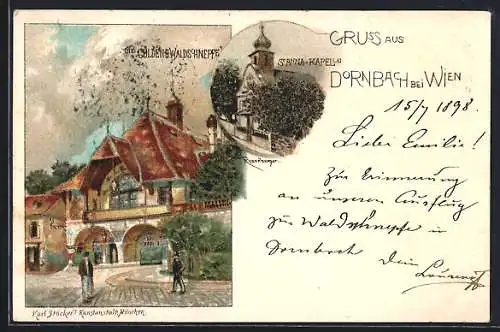 DIE "GÜLDENE WALDSCHNEPFE"
St. ANNA-KAPELLE
GRUSS AUS
DORNBACH BEI WIEN
15/7 1898.
Lieber Emilie!
Zur Erinnerung
an unseren Ausflug
zur Waldschnepfe in
Dornbach Dein
Karl Stücker's Kunstanstalt, München.